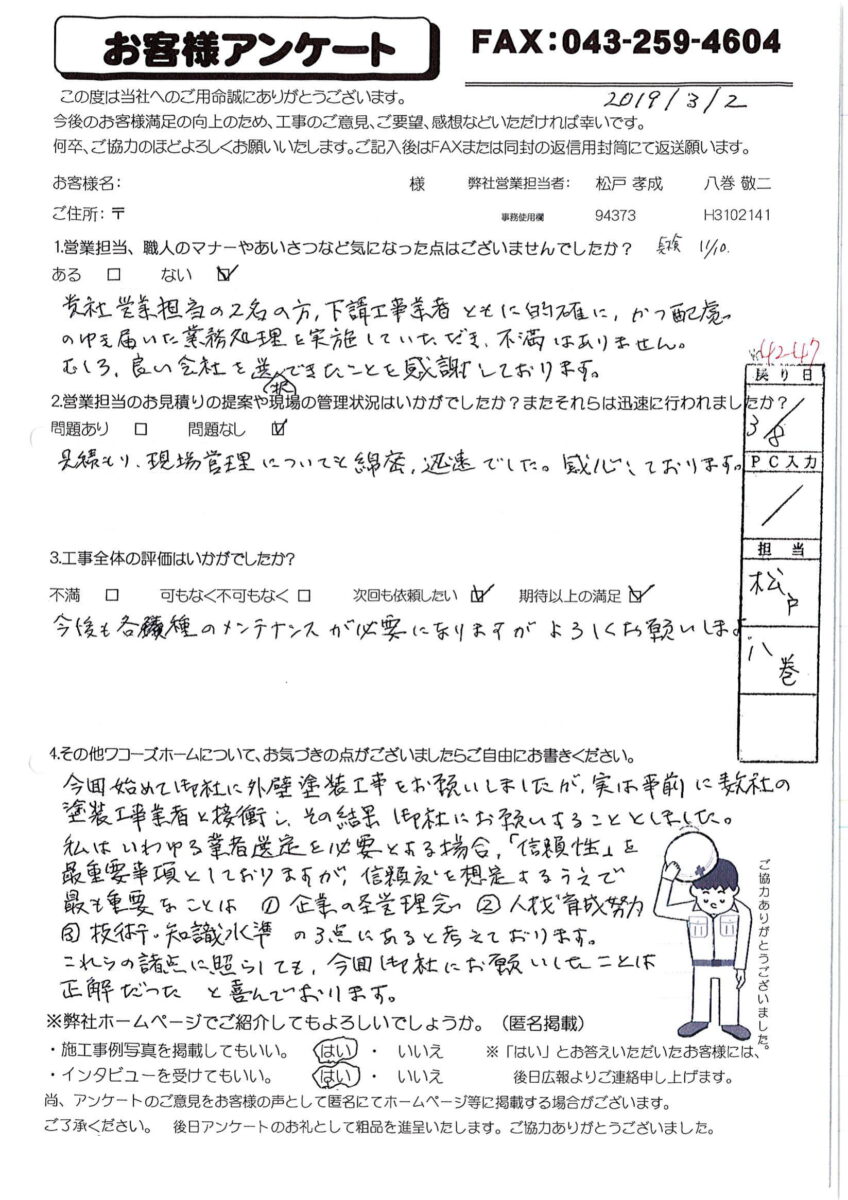 お客様アンケート
FAX:043-259-4604
2019/3/2
この度は当社へのご用命誠にありがとうございます。
今後のお客様満足の向上のため、工事のご意見、ご要望、感想などいただければ幸いです。
何卒、ご協力のほどよろしくお願いいたします。ご記入後はFAXまたは同封の返信用封筒にて返送願います。
お客様名: 様 弊社営業担当者: 松戸 孝成 八巻 敬二
ご住所:〒 事務使用欄 94373 H3102141
1.営業担当、職人のマナーやあいさつなど気になった点はございませんでしたか? 11/10.
ある □ ない ☑
貴社営業担当の2名の方,下請工事業者ともに的確に,かつ配慮
のゆき届いた業務処理を実施していただき、不満はありません。
むしろ、良い会社を選択できたことを感謝しております。
42-47
戻り日
3/8
PC入力
/
担当
松戸
八巻
2.営業担当のお見積りの提案や現場の管理状況はいかがでしたか?またそれらは迅速に行われましたか?
問題あり □ 問題なし ☑
見積もり、現場管理についても綿密,迅速でした。感心しております。
3.工事全体の評価はいかがでしたか?
不満 □ 可もなく不可もなく □ 次回も依頼したい ☑ 期待以上の満足 ☑
今後も各種のメンテナンスが必要になりますがよろしくお願いします
4.その他ワコーズホームについて、お気づきの点がございましたらご自由にお書きください。
今回始めて御社に外壁塗装工事をお願いしましたが,実は事前に数社の
塗装工事業者と接衝し、その結果御社にお願いすることとしました。
私はいわゆる業者選定を必要とする場合,「信頼性」を
最重要事項としておりますが,信頼度を想定するうえで
最も重要なことは ① 企業の経営理念 ② 人材育成努力
③ 技術・知識水準 の3点にあると考えております。
これらの諸点に照らしても,今回御社にお願いしたことは
正解だった と喜んでおります。
ご協力ありがとうございました。
※弊社ホームページでご紹介してもよろしいでしょうか。(匿名掲載)
・施工事例写真を掲載してもいい。 はい ・ いいえ ※「はい」とお答えいただいたお客様には、
・インタビューを受けてもいい。 はい ・ いいえ 後日広報よりご連絡申し上げます。
尚、アンケートのご意見をお客様の声として匿名にてホームページ等に掲載する場合がございます。
ご了承ください。 後日アンケートのお礼として粗品を進呈いたします。ご協力ありがとうございました。